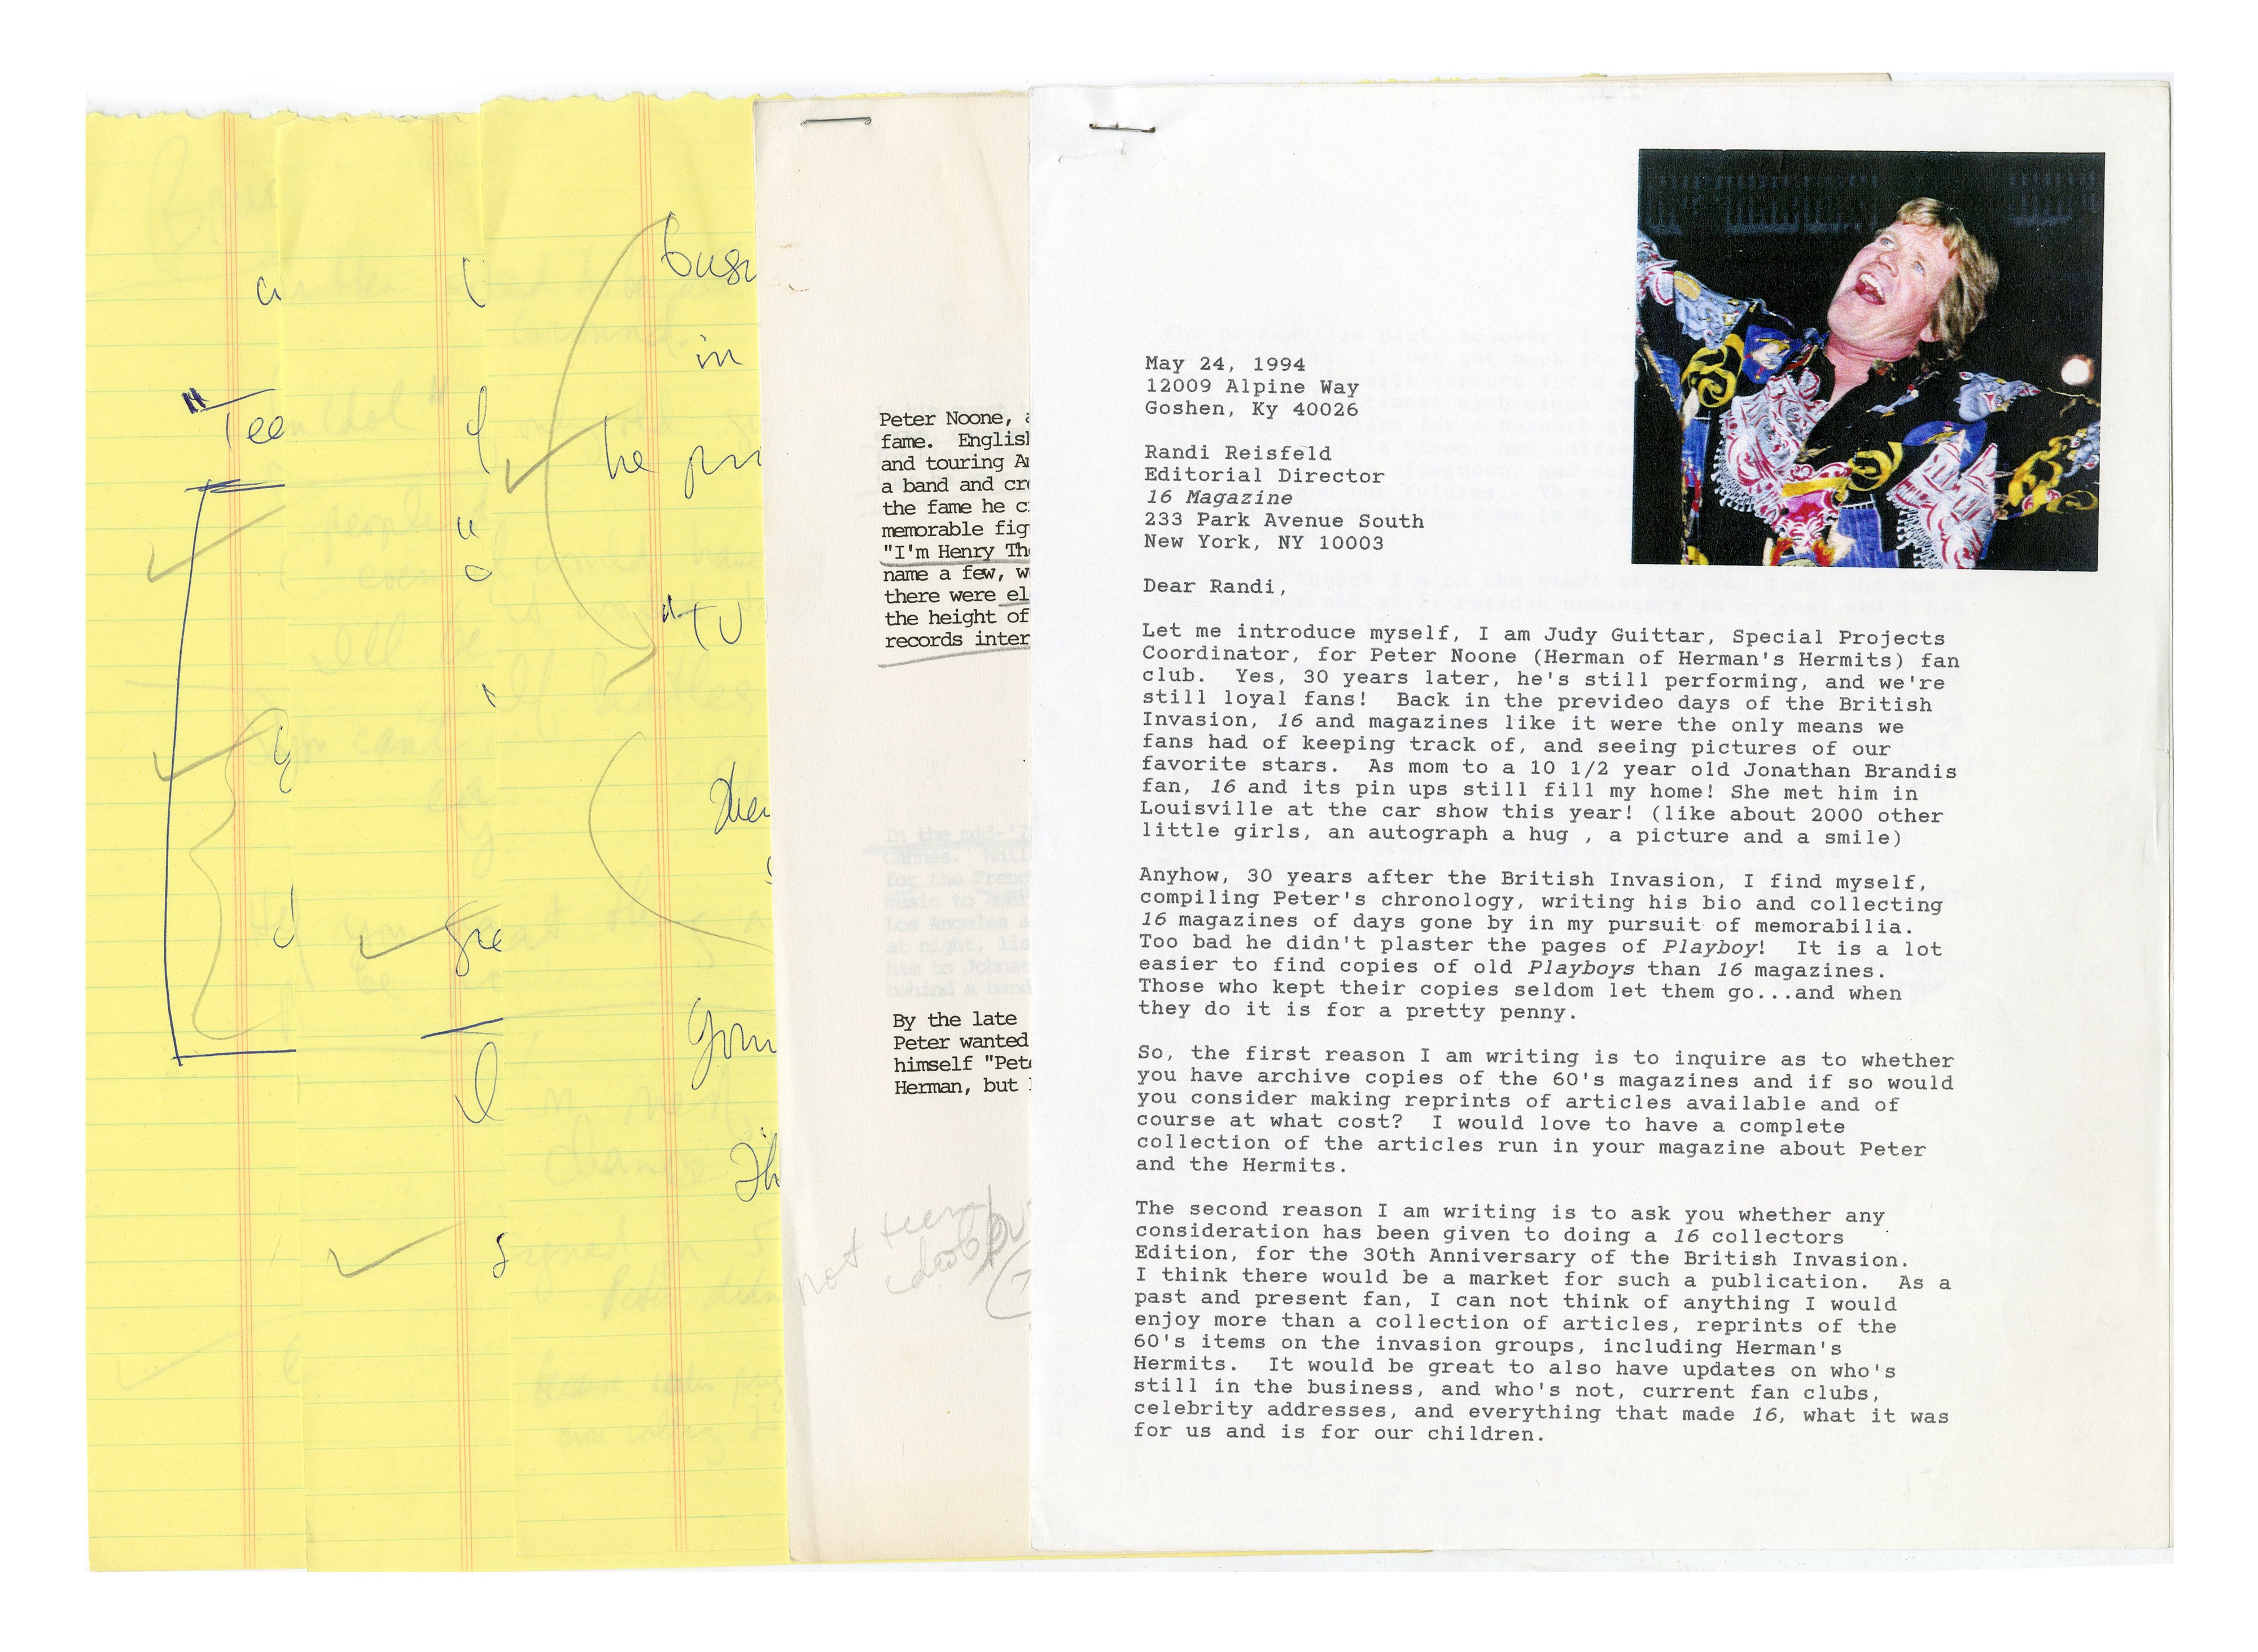 busi
in
"Tee
he pri
"TV
gre
your
Peter Noone, a
fame.  English
and touring Am
a band and cre
the fame he c
memorable fig
"I'm Henry The
name a few, w
there were el
the height of
records inter
In the mid-'7
Cannes.  Whil
for the Frenc
music to
Los Angeles a
at night, lis
him to Johns
behind a band
By the late
Peter wanted
himself "Pete
Herman, but
not teen
idol
May 24, 1994
12009 Alpine Way
Goshen, Ky 40026
Randi Reisfeld
Editorial Director
16 Magazine
233 Park Avenue South
New York, NY 10003
Dear Randi,
Let me introduce myself, I am Judy Guittar, Special Projects
Coordinator, for Peter Noone (Herman of Herman's Hermits) fan
club.  Yes, 30 years later, he's still performing, and we're
still loyal fans!  Back in the prevideo days of the British
Invasion, 16 and magazines like it were the only means we
fans had of keeping track of, and seeing pictures of our
favorite stars.  As mom to a 10 1/2 year old Jonathan Brandis
fan, 16 and its pin ups still fill my home! She met him in
Louisville at the car show this year! (like about 2000 other
little girls, an autograph a hug , a picture and a smile)
Anyhow, 30 years after the British Invasion, I find myself,
compiling Peter's chronology, writing his bio and collecting
16 magazines of days gone by in my pursuit of memorabilia.
Too bad he didn't plaster the pages of Playboy!  It is a lot
easier to find copies of old Playboys than 16 magazines.
Those who kept their copies seldom let them go...and when
they do it is for a pretty penny.
So, the first reason I am writing is to inquire as to whether
you have archive copies of the 60's magazines and if so would
you consider making reprints of articles available and of
course at what cost?  I would love to have a complete
collection of the articles run in your magazine about Peter
and the Hermits.
The second reason I am writing is to ask you whether any
consideration has been given to doing a 16 collectors
Edition, for the 30th Anniversary of the British Invasion.
I think there would be a market for such a publication.  As a
past and present fan, I can not think of anything I would
enjoy more than a collection of articles, reprints of the
60's items on the invasion groups, including Herman's
Hermits.  It would be great to also have updates on who's
still in the business, and who's not, current fan clubs,
celebrity addresses, and everything that made 16, what it was
for us and is for our children.